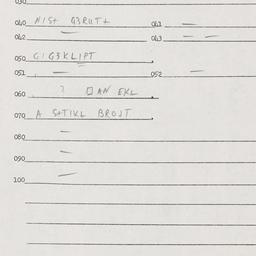 030
040 NIST G3RUT+ 041 —
042 — 043 — —
050 GIG3KLIPT
051 — 052 —
060 ? □ AN EKL
070 A STIKL BROJT
080 —
090 —
100 —